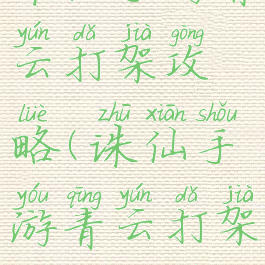 yún dǎ jià gōng
云打架攻
lüè zhū xiān shǒu
略(诛仙手
yóu qīng yún dǎ jià
游青云打架